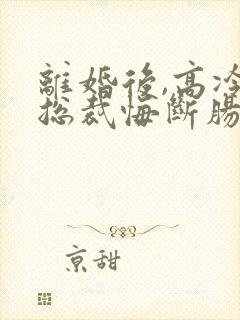 離婚後,高冷
總裁悔斷腸
京甜